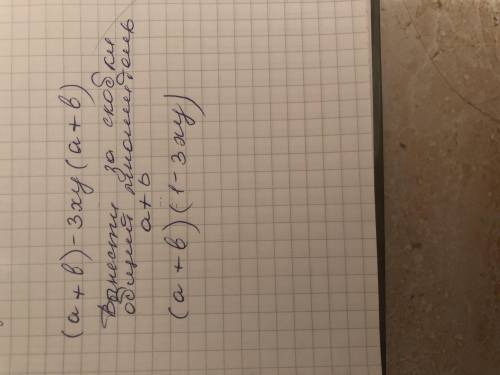 (a+b)-3xy(a+b)
Вынести за скобки
общий множитель
a+b
(a+b)(1-3xy)